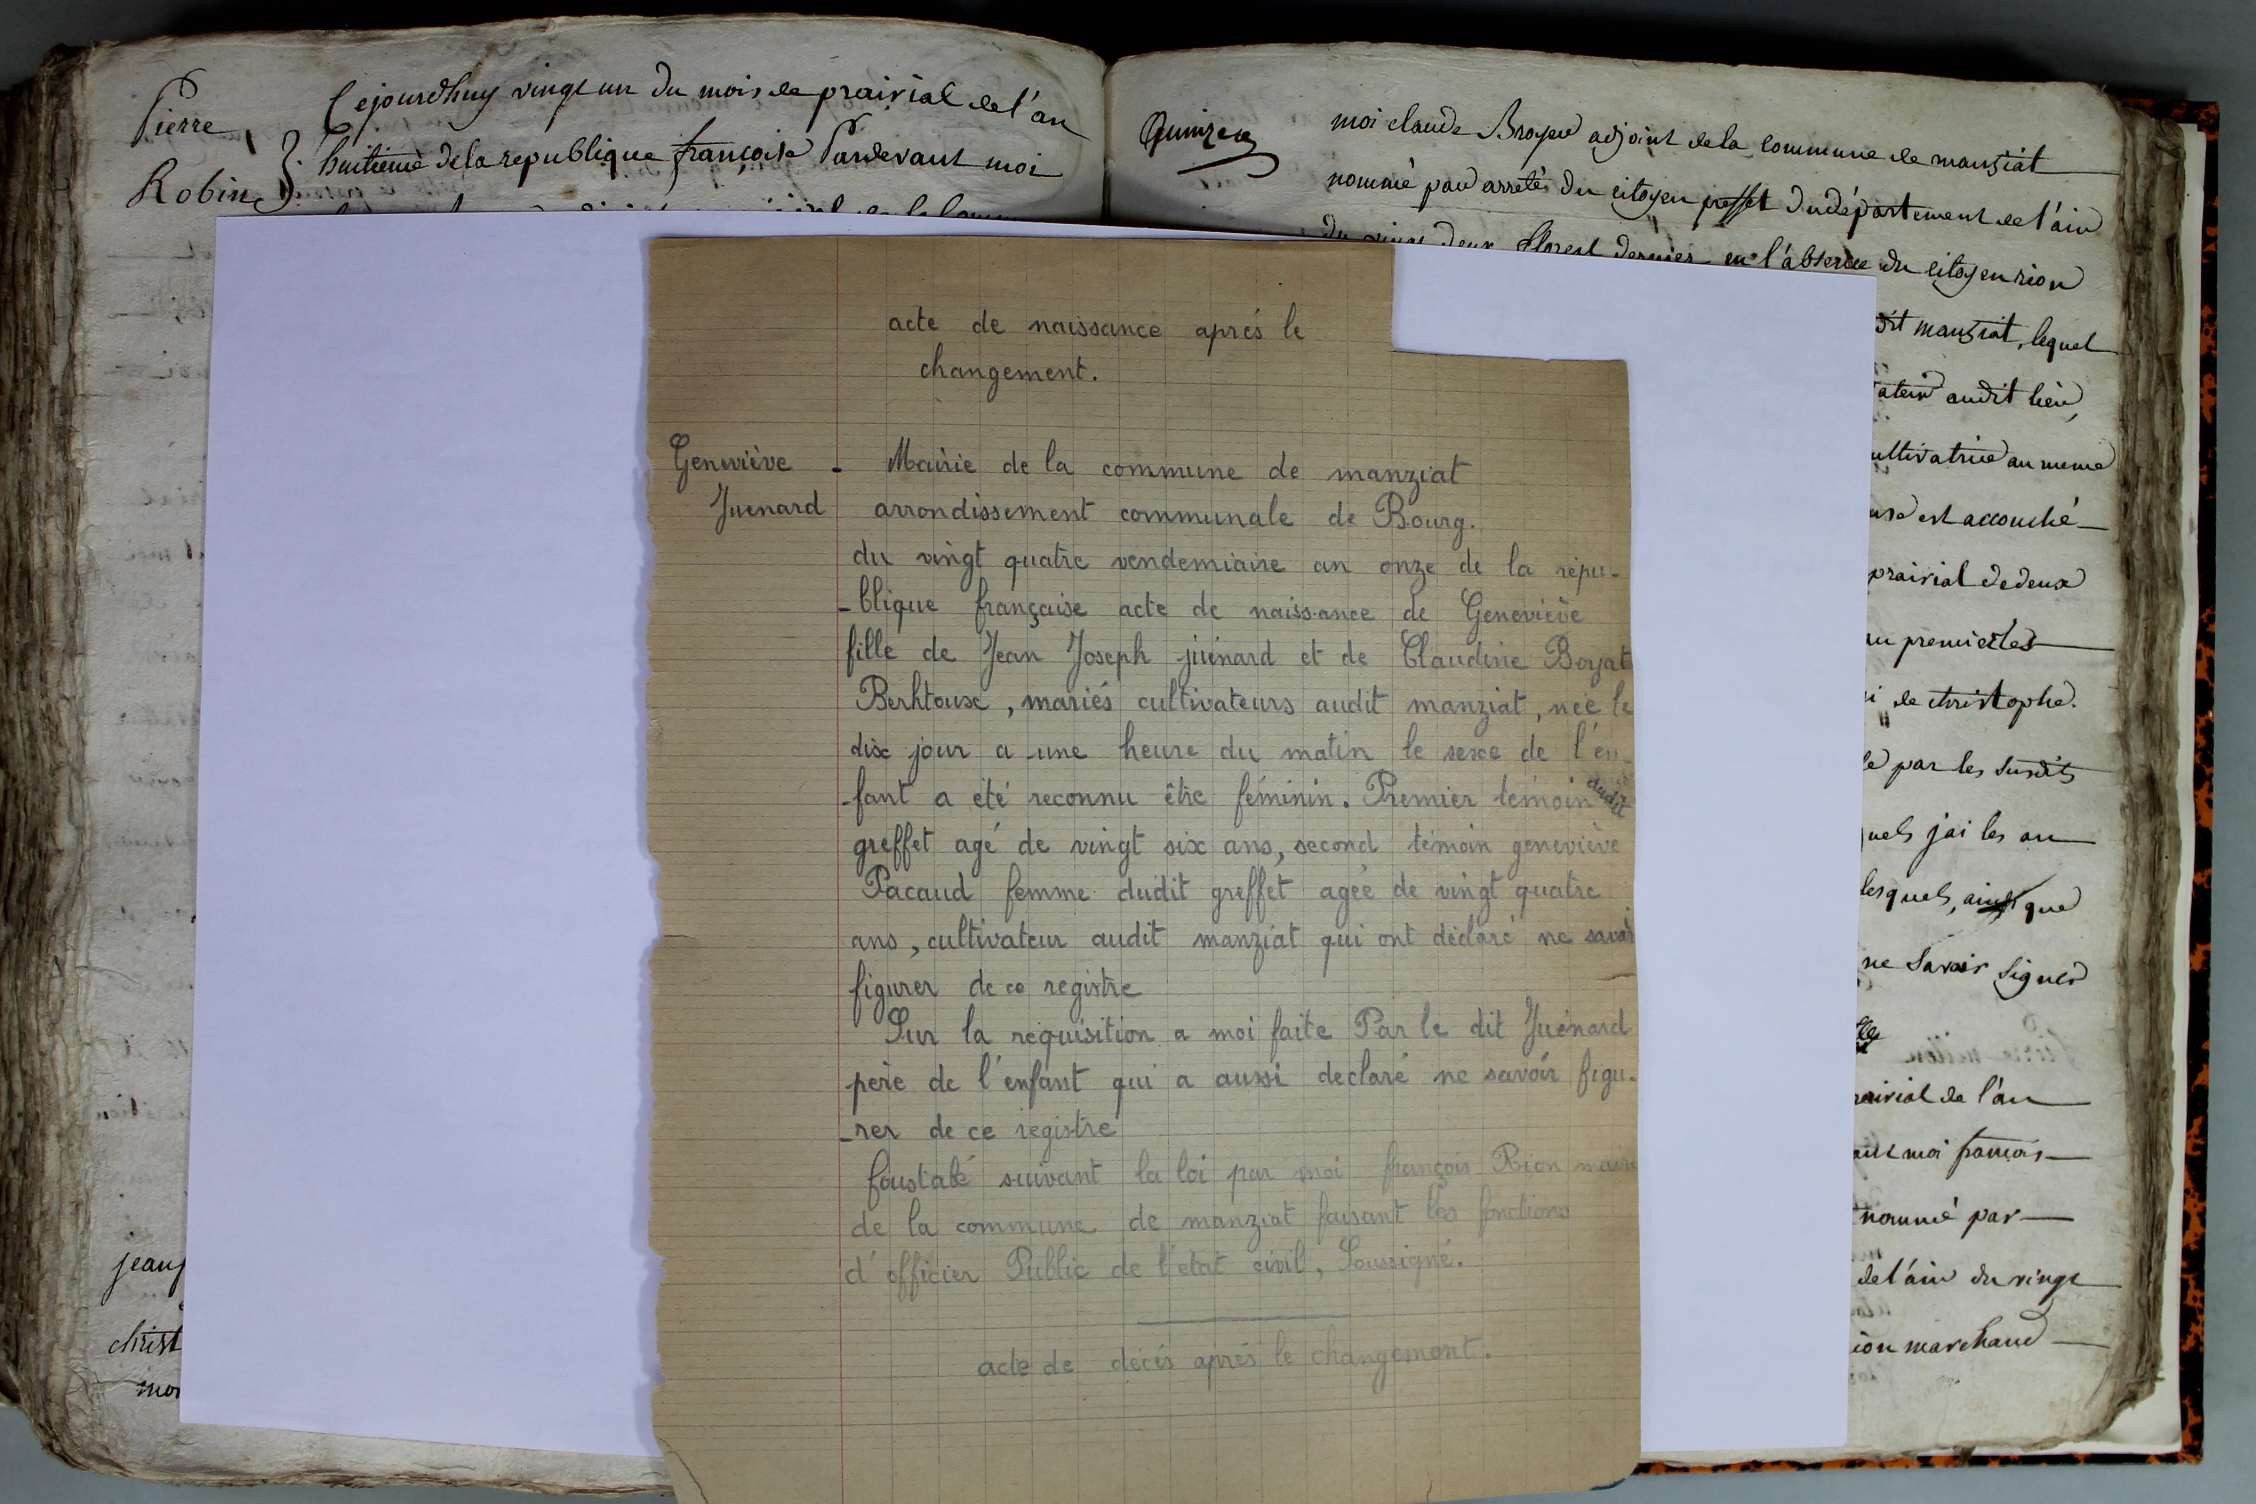 Pierre
Robin
Cejourdhuy vingt un du mois de prairial de l'an
huitieme de la republique françoise Pardevant moi
Quinze
moi claude Broyer adjoint de la commune de manziat
nommé par arrêté du citoyen preffet du département de l'ain
du vingt deux floreal dernier en l'absence du citoyen rion
dit manziat, lequel
audit lieu,
ultivatrice au meme
est accouché
prairial dedeux
au premier les
i de christophe.
le par les susdits
uels j'ai les an
lesquels, ainsi que
ne Savoir signer
rairial de l'an
moi françois
nommé par
de l'ain du vingt
ion marchand
jean
christ
mo
acte de naissance aprés le
changement.
Geneviève - Mairie de la commune de manziat
Juenard arrondissement communale de Bourg.
du vingt quatre vendemiaire an onze de la répu-
-blique française acte de naissance de Geneviève
fille de Jean Joseph juénard et de Claudine Boyat
Berhtoux, mariés cultivateurs audit manziat, neé le
dix jour a une heure du matin le sexe de l'en-
-fant a été reconnu être féminin. Premier témoin dudit
greffet agé de vingt six ans, second témoin geneviève
Pacaud femme dudit greffet ageé de vingt quatre
ans, cultivateur audit manziat qui ont déclaré ne savoir
figurer de ce registre
Sur la réquisition a moi faite Par le dit Juénard
père de l'enfant qui a aussi declaré ne savoir figu-
-rer de ce registre
foustaté suivant la loi par moi françois Rion maire
de la commune de manziat faisant les fonctions
d'officier Public de l'état civil, Soussigné.
acte de décés aprés le changement.